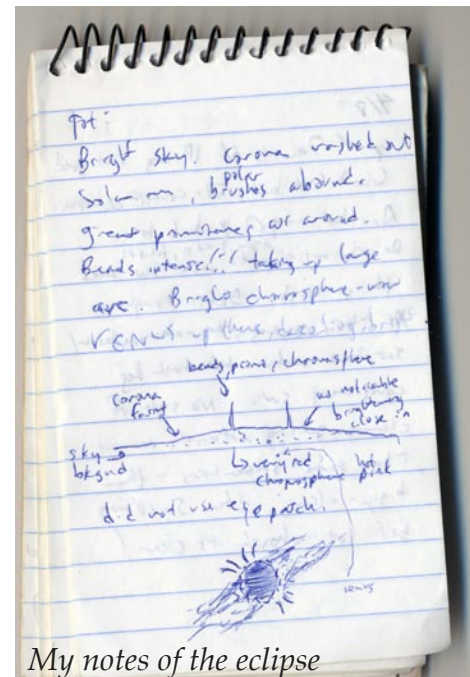 Tot:
Bright sky! Corona washed out
Solar polar brushes abound.
great prominences all around.
Beads intense!!! taking up large
arc. Bright chromosphere - wow
VENUS up there, dazzling!
beads, proms, chromosphere
corona faint
no noticable brightening close in
sky bkgnd
very red chromosphere
hot pink
did not use eyepatch.
venus
My notes of the eclipse